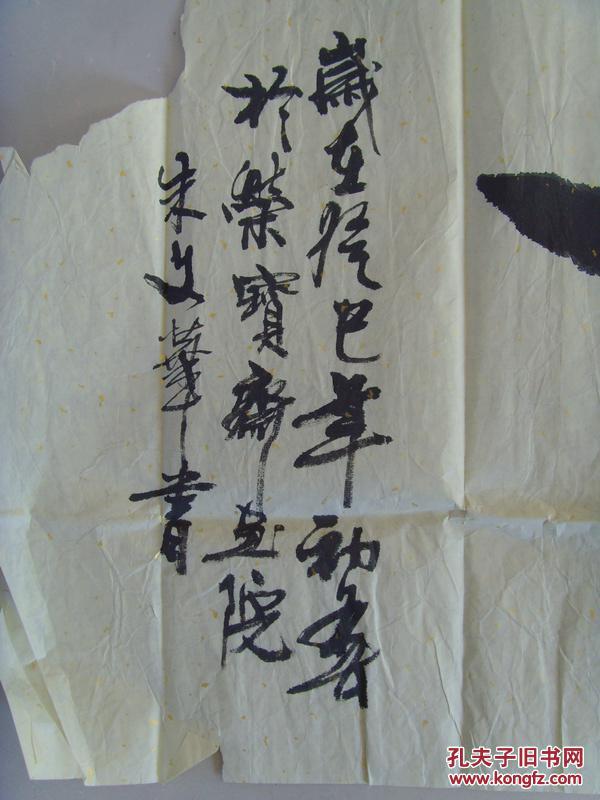 歲在癸巳年初春
於榮寶齋畫院
朱文華書
孔夫子旧书网
www.kongfz.com